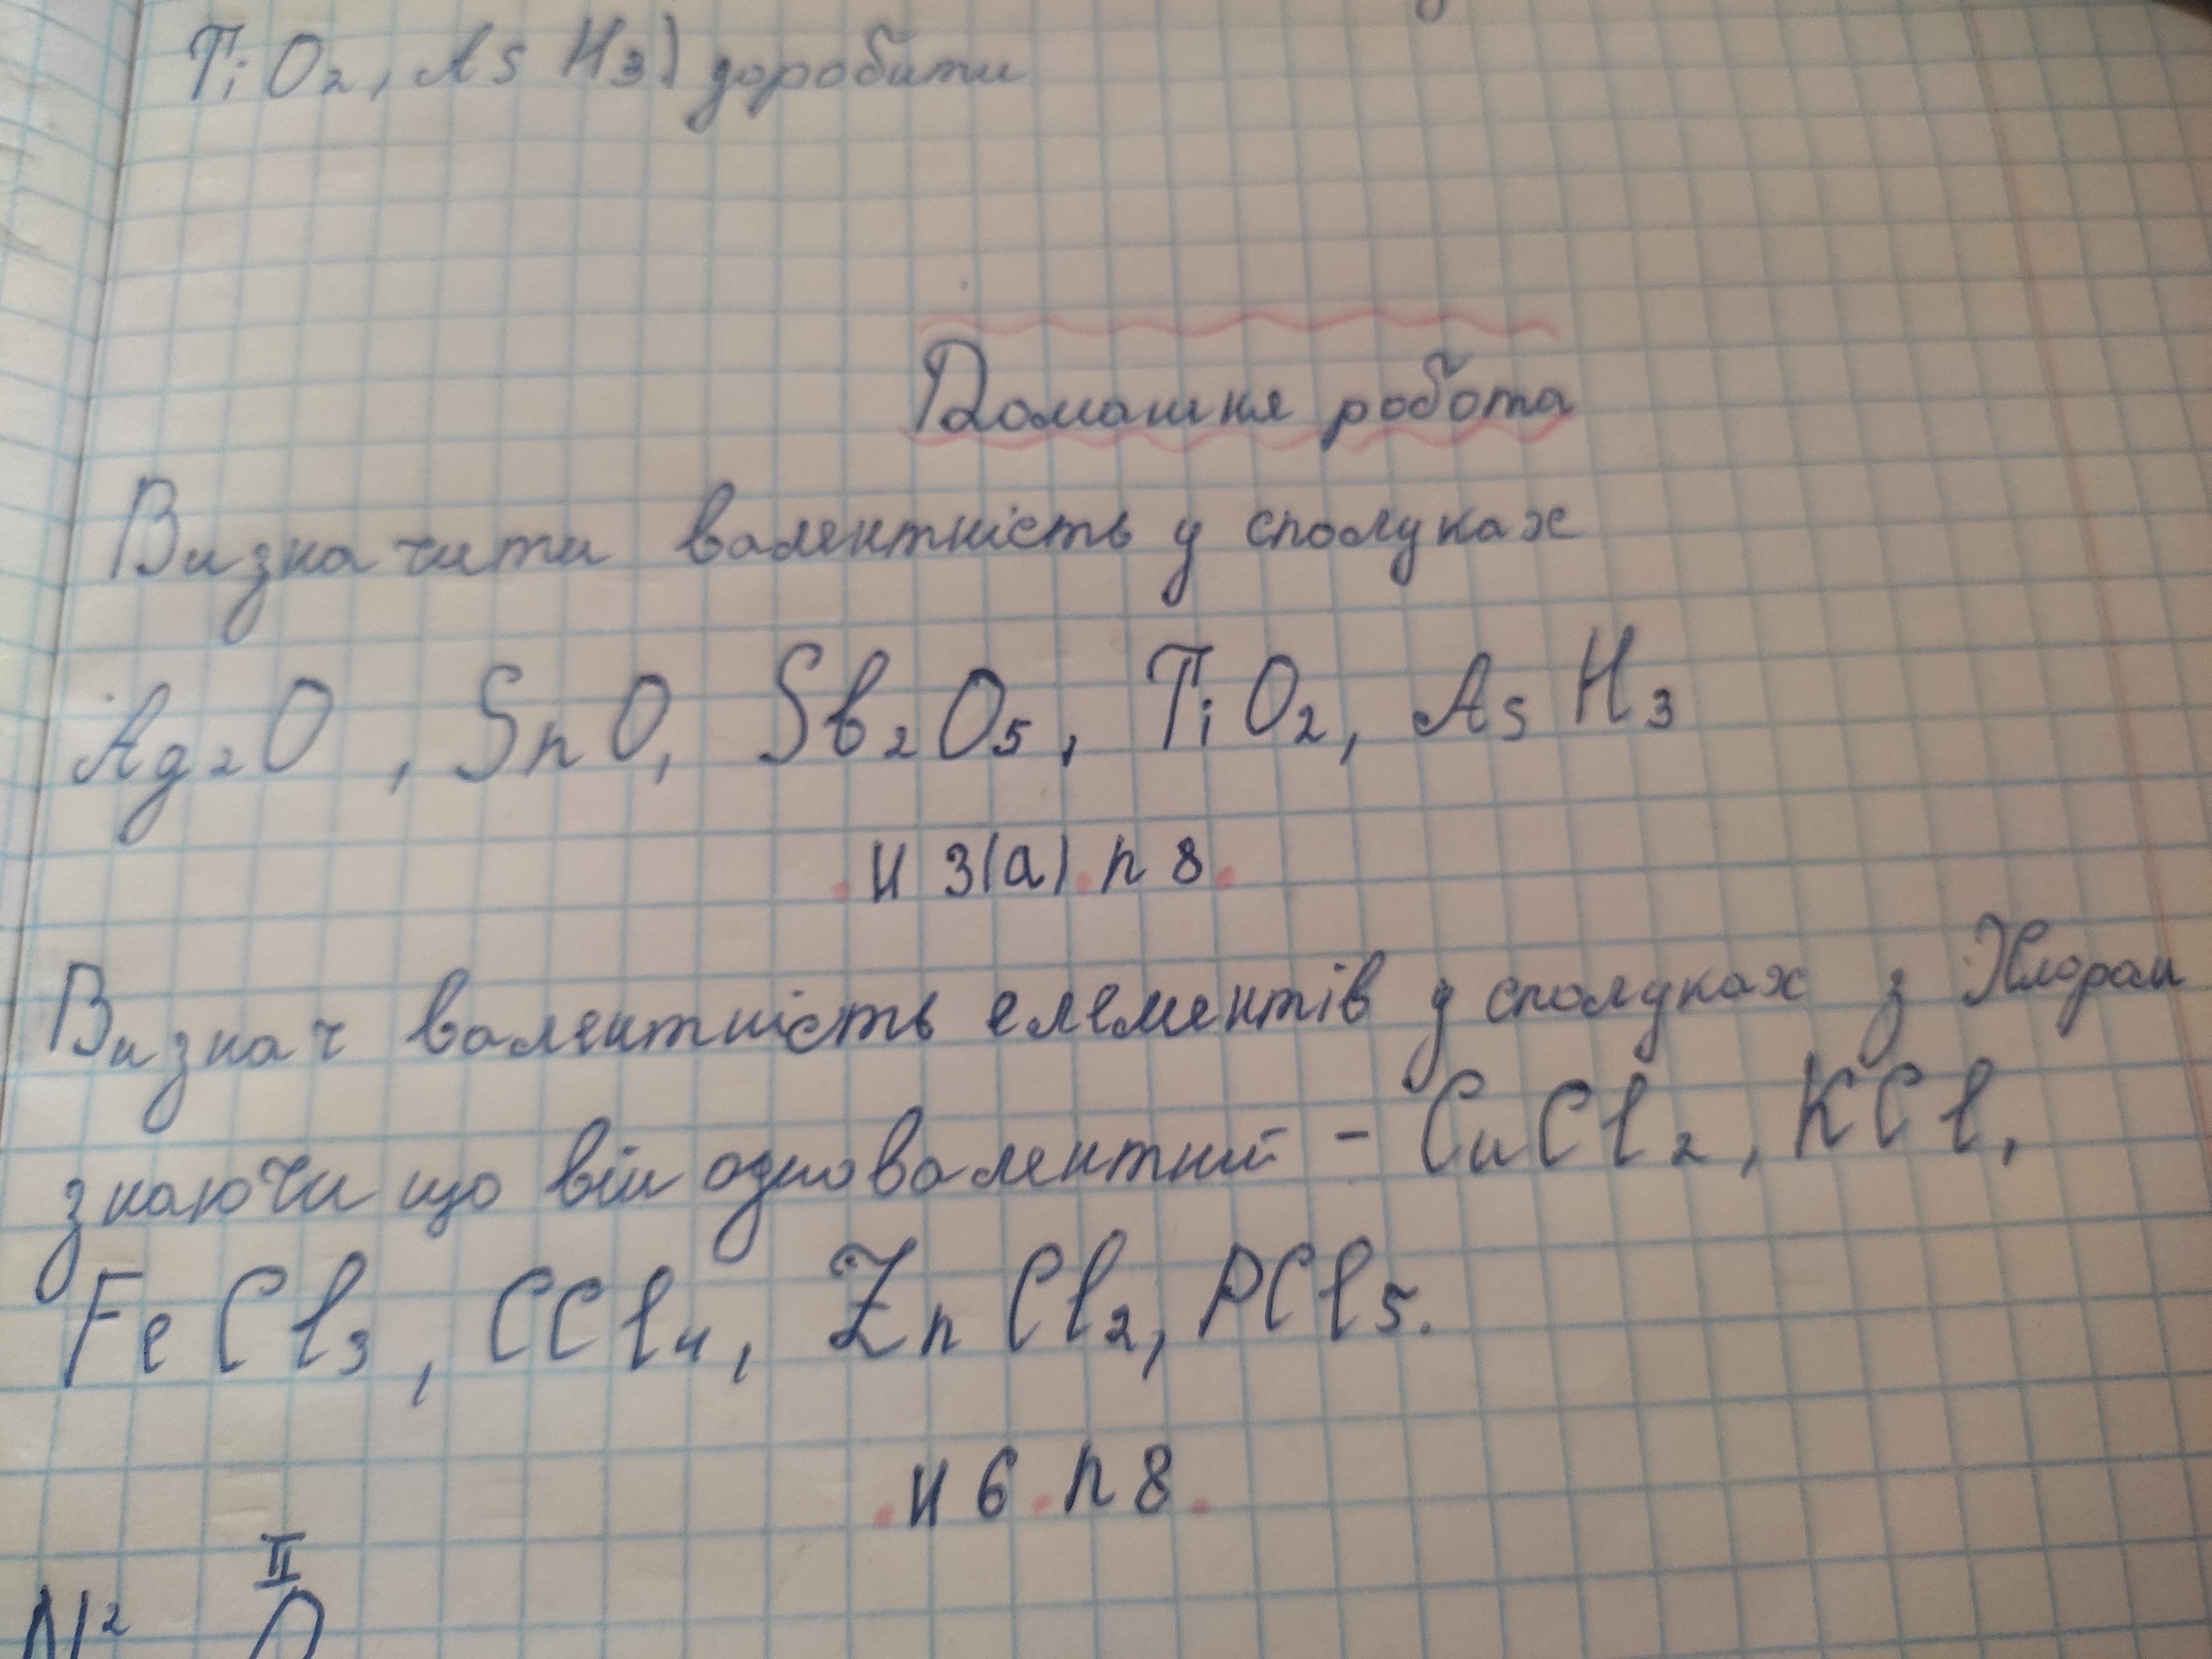 TiO2, AsH3) доробити
Домашня робота
Визначити валентність у сполуках
Ag2O, SnO, Sb2O5, TiO2, AsH3
№ 3(а). п 8.
Визнач валентність елементів у сполуках з Хлором
знаючи що він одновалентний - CuCl2, KCl,
FeCl3, CCl4, ZnCl2, PCl5.
№ 6. п 8.
II